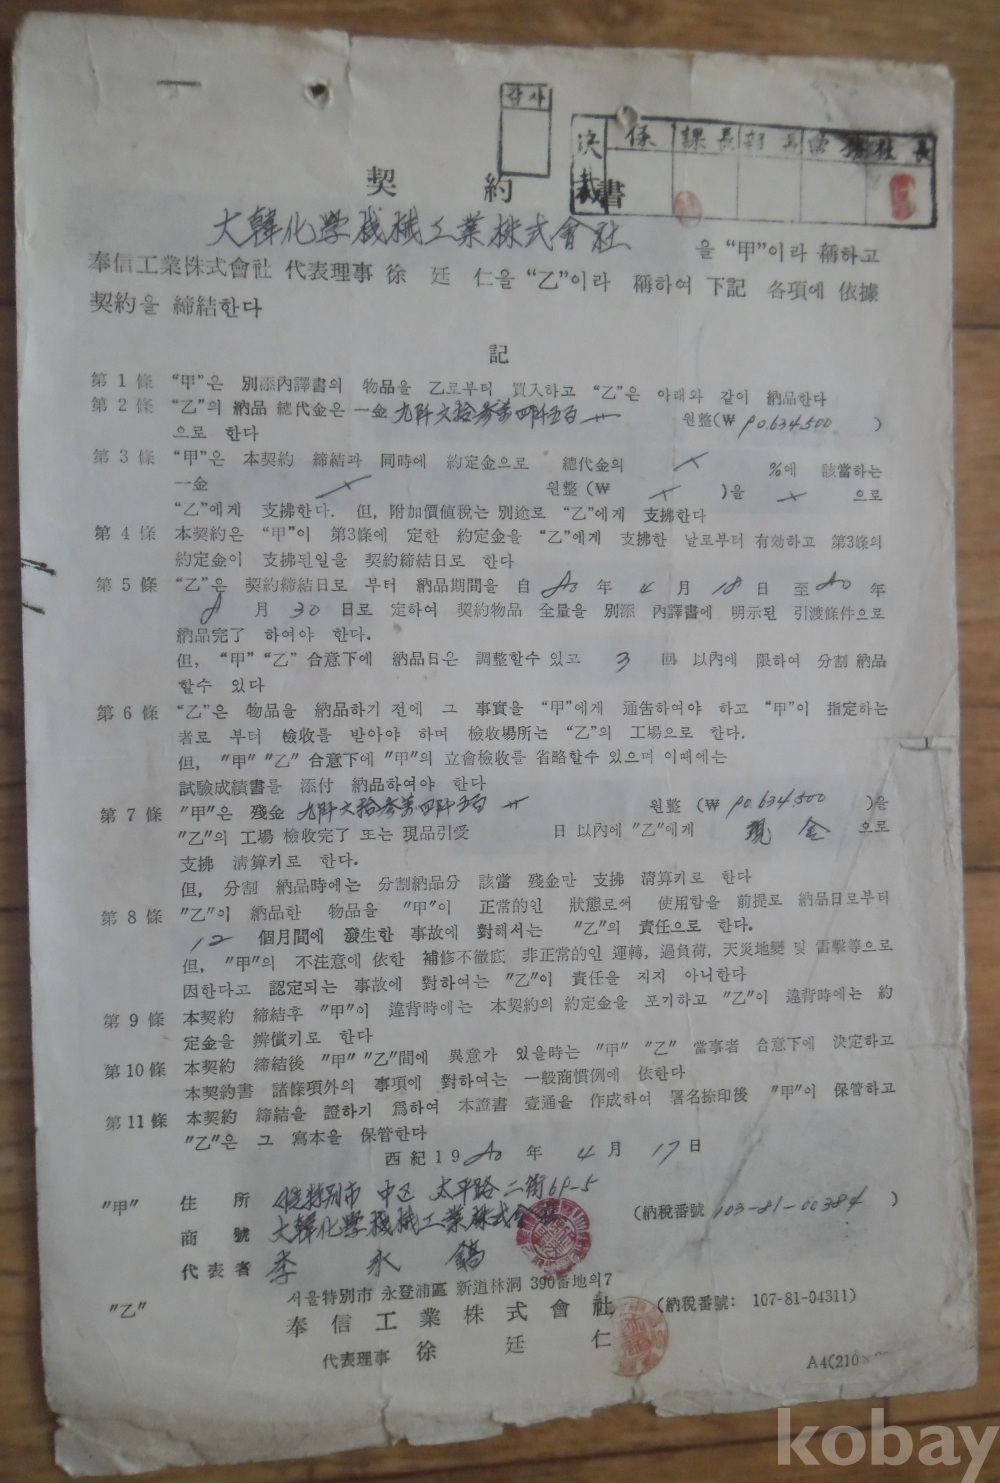 감사
決裁 係 課長 部長 常務 社長
契約書
大韓化学機械工業株式會社 을 “甲”이라 稱하고
奉信工業株式會社 代表理事 徐 廷 仁을 “乙”이라 稱하여 下記 各項에 依據
契約을 締結한다
記
第 1 條 “甲”은 別添內譯書의 物品을 乙로부터 買入하고 “乙”은 아래와 같이 納品한다
第 2 條 “乙”의 納品 總代金은 一金 원整(₩ 90.634.500 )
으로 한다
第 3 條 “甲”은 本契約 締結과 同時에 約定金으로 總代金의 %에 該當하는
一金 원整 (₩ )을 으로
“乙”에게 支拂한다. 但, 附加價値稅는 別途로 “乙”에게 支拂한다
第 4 條 本契約은 “甲”이 第3條에 定한 約定金을 “乙”에게 支拂한 날로부터 有効하고 第3條의
約定金이 支拂된일을 契約締結日로 한다
第 5 條 “乙”은 契約締結日로 부터 納品期間을 自 80 年 4 月 18 日 至 80 年
8 月 30 日로 定하여 契約物品 全量을 別添 內譯書에 明示된 引渡條件으로
納品完了 하여야 한다.
但, “甲” “乙” 合意下에 納品日은 調整할수 있고 3 回 以內에 限하여 分割 納品
할수 있다
第 6 條 “乙”은 物品을 納品하기 전에 그 事實을 “甲”에게 通告하여야 하고 “甲”이 指定하는
者로 부터 檢收를 받아야 하며 檢收場所는 “乙”의 工場으로 한다.
但, “甲” “乙” 合意下에 “甲”의 立會檢收를 省略할수 있으며 이때에는
試驗成績書를 添付 納品하여야 한다
第 7 條 “甲”은 殘金 원整 (₩ 90.634.500 )을
“乙”의 工場 檢收完了 또는 現品引受 日 以內에 “乙”에게 現 金 으로
支拂 淸算키로 한다.
但, 分割 納品時에는 分割納品分 該當 殘金만 支拂 淸算키로 한다
第 8 條 “乙”이 納品한 物品을 “甲”이 正常的인 狀態로써 使用함을 前提로 納品日로부터
12 個月間에 發生한 事故에 對해서는 “乙”의 責任으로 한다.
但, “甲”의 不注意에 依한 補修不徹底 非正常的인 運轉, 過負荷, 天災地變 및 雷擊等으로
因한다고 認定되는 事故에 對하여는 “乙”이 責任을 지지 아니한다
第 9 條 本契約 締結후 “甲”이 違背時에는 本契約의 約定金을 포기하고 “乙”이 違背時에는 約
定金을 辨償키로 한다
第10條 本契約 締結後 “甲” “乙”間에 異意가 있을時는 “甲” “乙” 當事者 合意下에 決定하고
本契約書 諸條項外의 事項에 對하여는 一般商慣例에 依한다
第11條 本契約 締結을 證하기 爲하여 本證書 壹通을 作成하여 署名捺印後 “甲”이 保管하고
“乙”은 그 寫本을 保管한다
西紀19 80 年 4 月 17 日
“甲” 住 所 서울特別市 中区 太平路 二街 69-5
商 號 大韓化学機械工業株式会社 (納稅番號 103-81-00384 )
代表者 李 永 鎬
서울特別市 永登浦區 新道林洞 390番地의7
“乙” 奉信工業株式會社 (納稅番號: 107-81-04311)
代表理事 徐 廷 仁
A4(210×
kobay